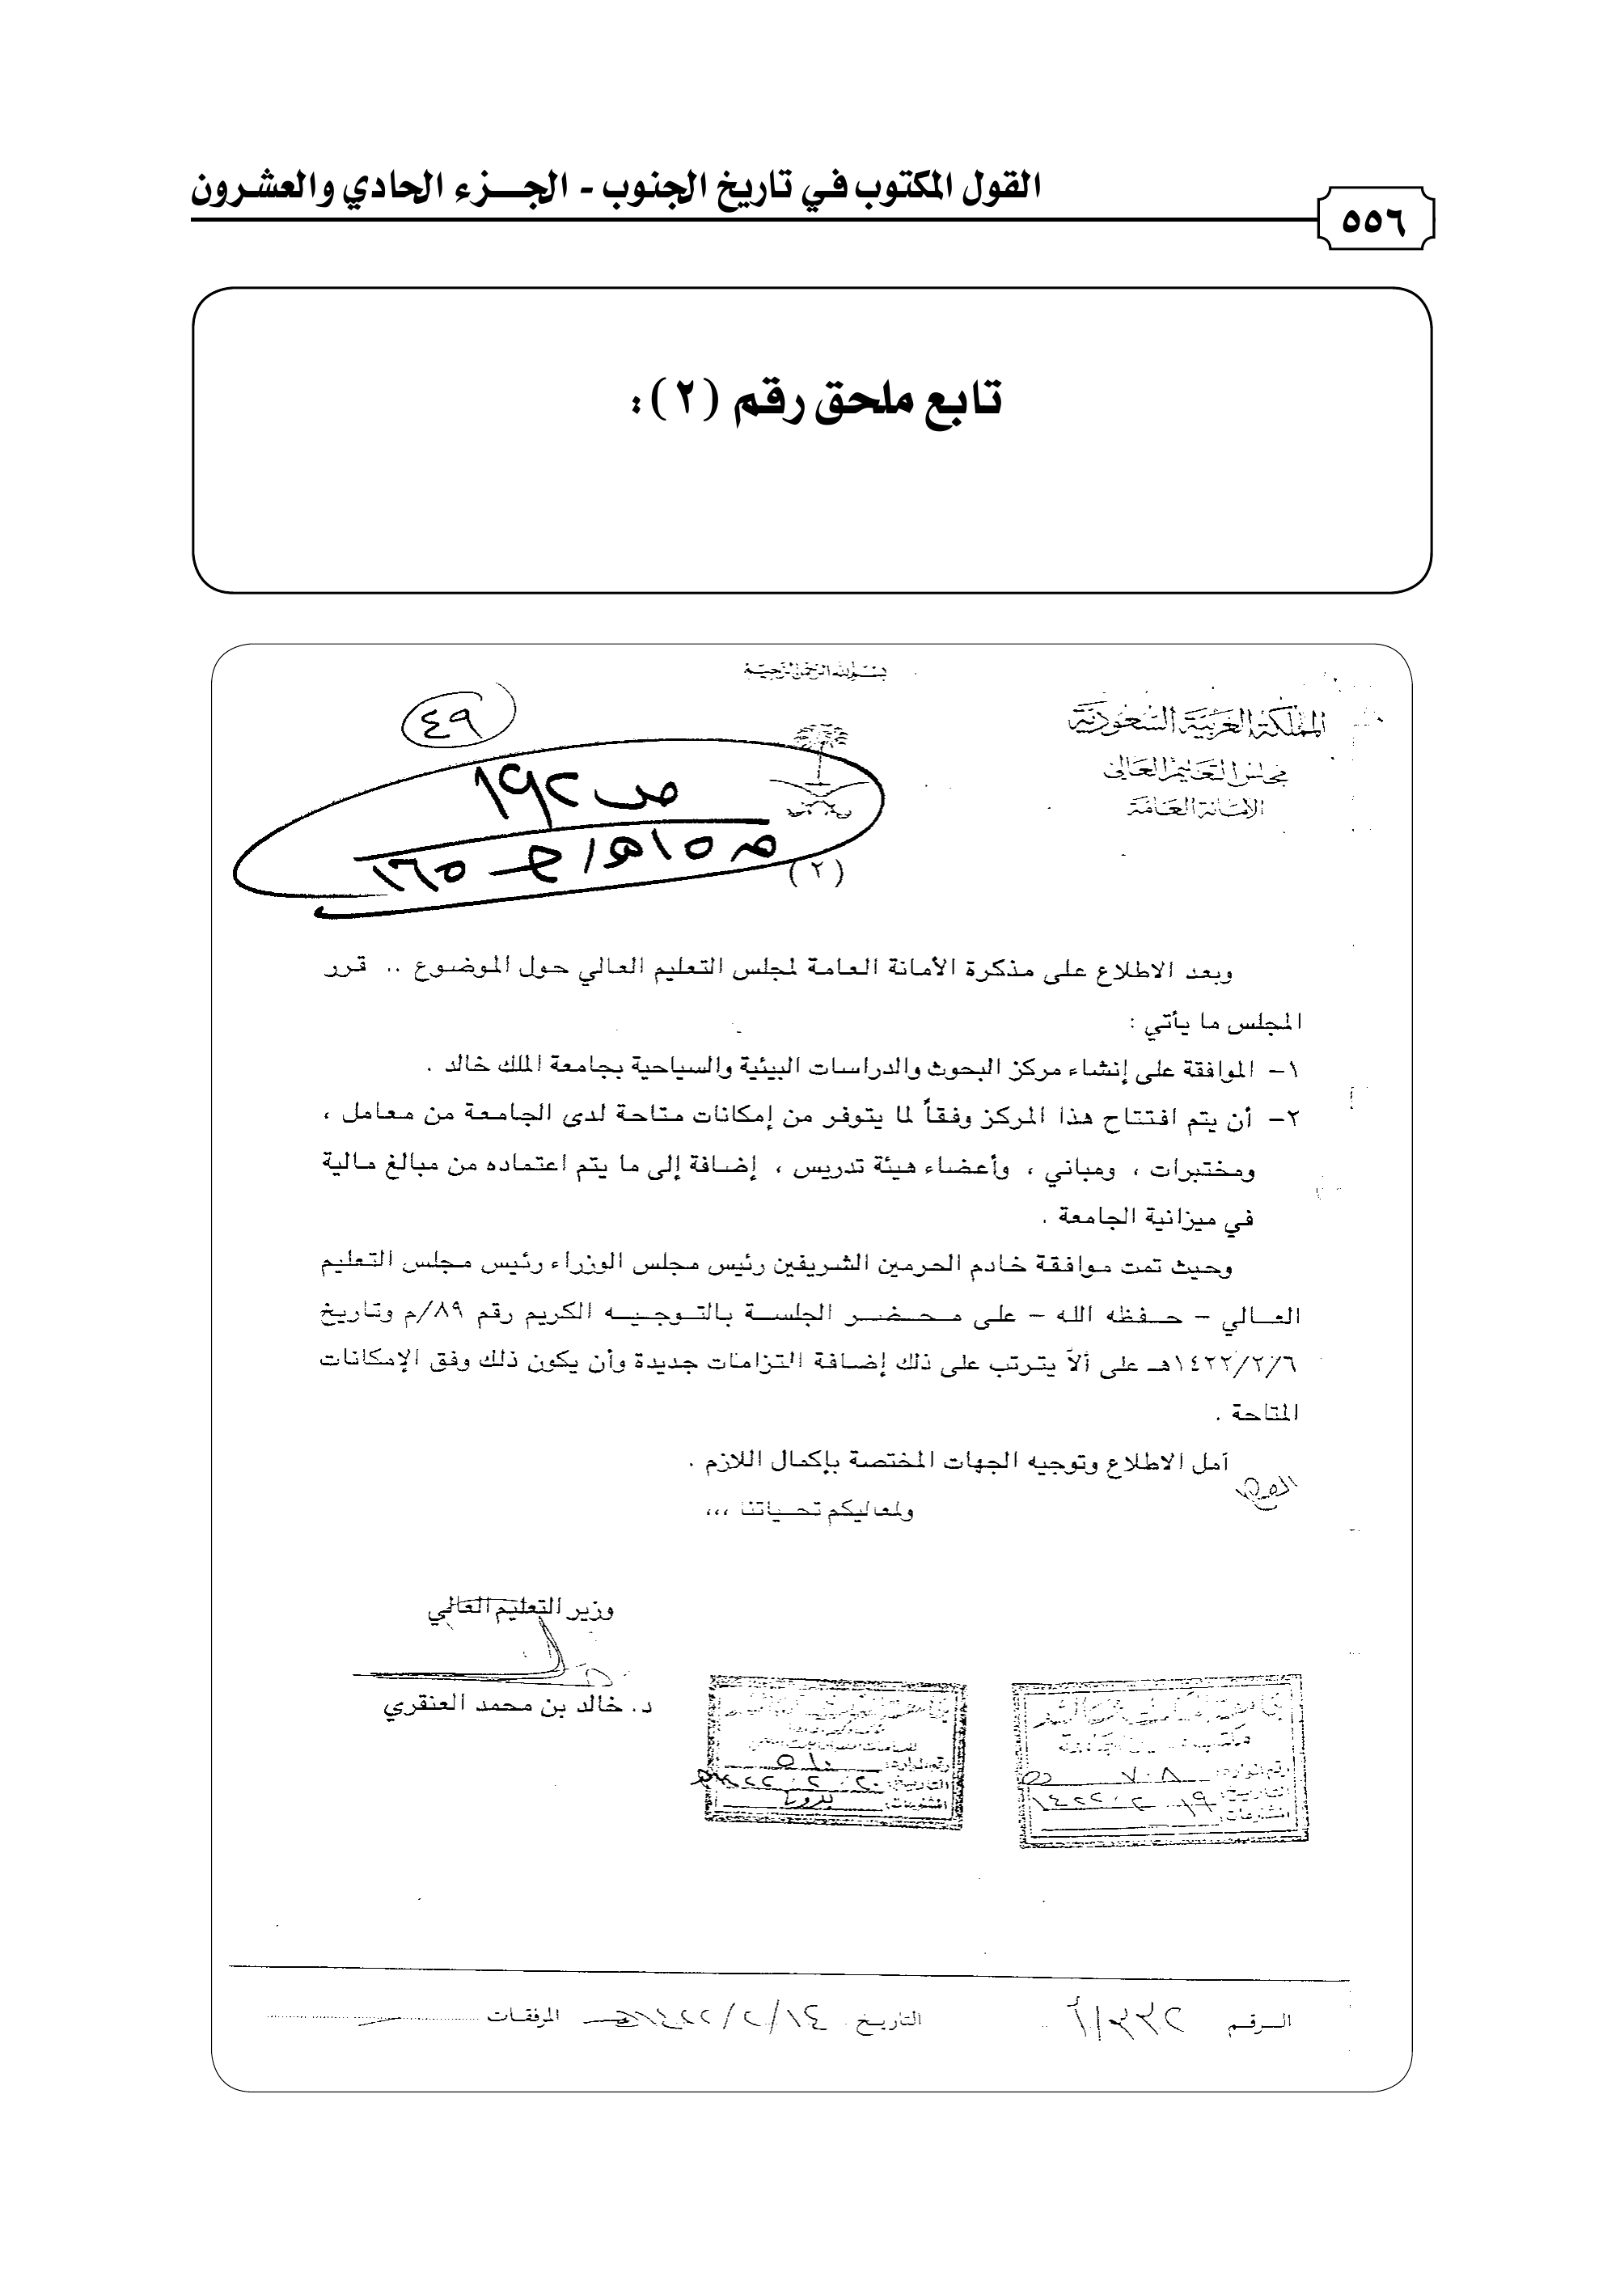 القول المكتوب في تاريخ الجنوب - الجـــزء الحادي والعشرون
٥٥٦
تابع ملحق رقم (٢):
بسم الله الرحمن الرحيم
المملكة العربية السعودية
مجلس التعليم العالي
الأمانة العامة
٤٩
ص ١٩٢
(٢)
وبعد الاطلاع على مذكرة الأمانة العامة لمجلس التعليم العالي حول الموضوع .. قرر
المجلس ما يأتي :
١- الموافقة على إنشاء مركز البحوث والدراسات البيئية والسياحية بجامعة الملك خالد .
٢- أن يتم افتتاح هذا المركز وفقاً لما يتوفر من إمكانات متاحة لدى الجامعة من معامل ،
ومختبرات ، ومباني ، وأعضاء هيئة تدريس ، إضافة إلى ما يتم اعتماده من مبالغ مالية
في ميزانية الجامعة .
وحيث تمت موافقة خادم الحرمين الشريفين رئيس مجلس الوزراء رئيس مجلس التعليم
العـالي - حـفظه الله - على مـحـضـر الجلسـة بـالتـوجـيـه الكريم رقم ٨٩/م وتاريخ
١٤٢٢/٢/٦هـ على ألاّ يترتب على ذلك إضافة التزامات جديدة وأن يكون ذلك وفق الإمكانات
المتاحة .
آمل الاطلاع وتوجيه الجهات المختصة بإكمال اللازم .
ولمعاليكم تحـياتنا ،،،
وزير التعليم العالي
د. خالد بن محمد العنقري
رقم الوارد:
التاريخ:
المشفوعات:
رقم الوارد:
التاريخ:
المشفوعات:
الـرقـم
التاريـخ ١٤٢٢/٢/١٤هـ
المرفقـات